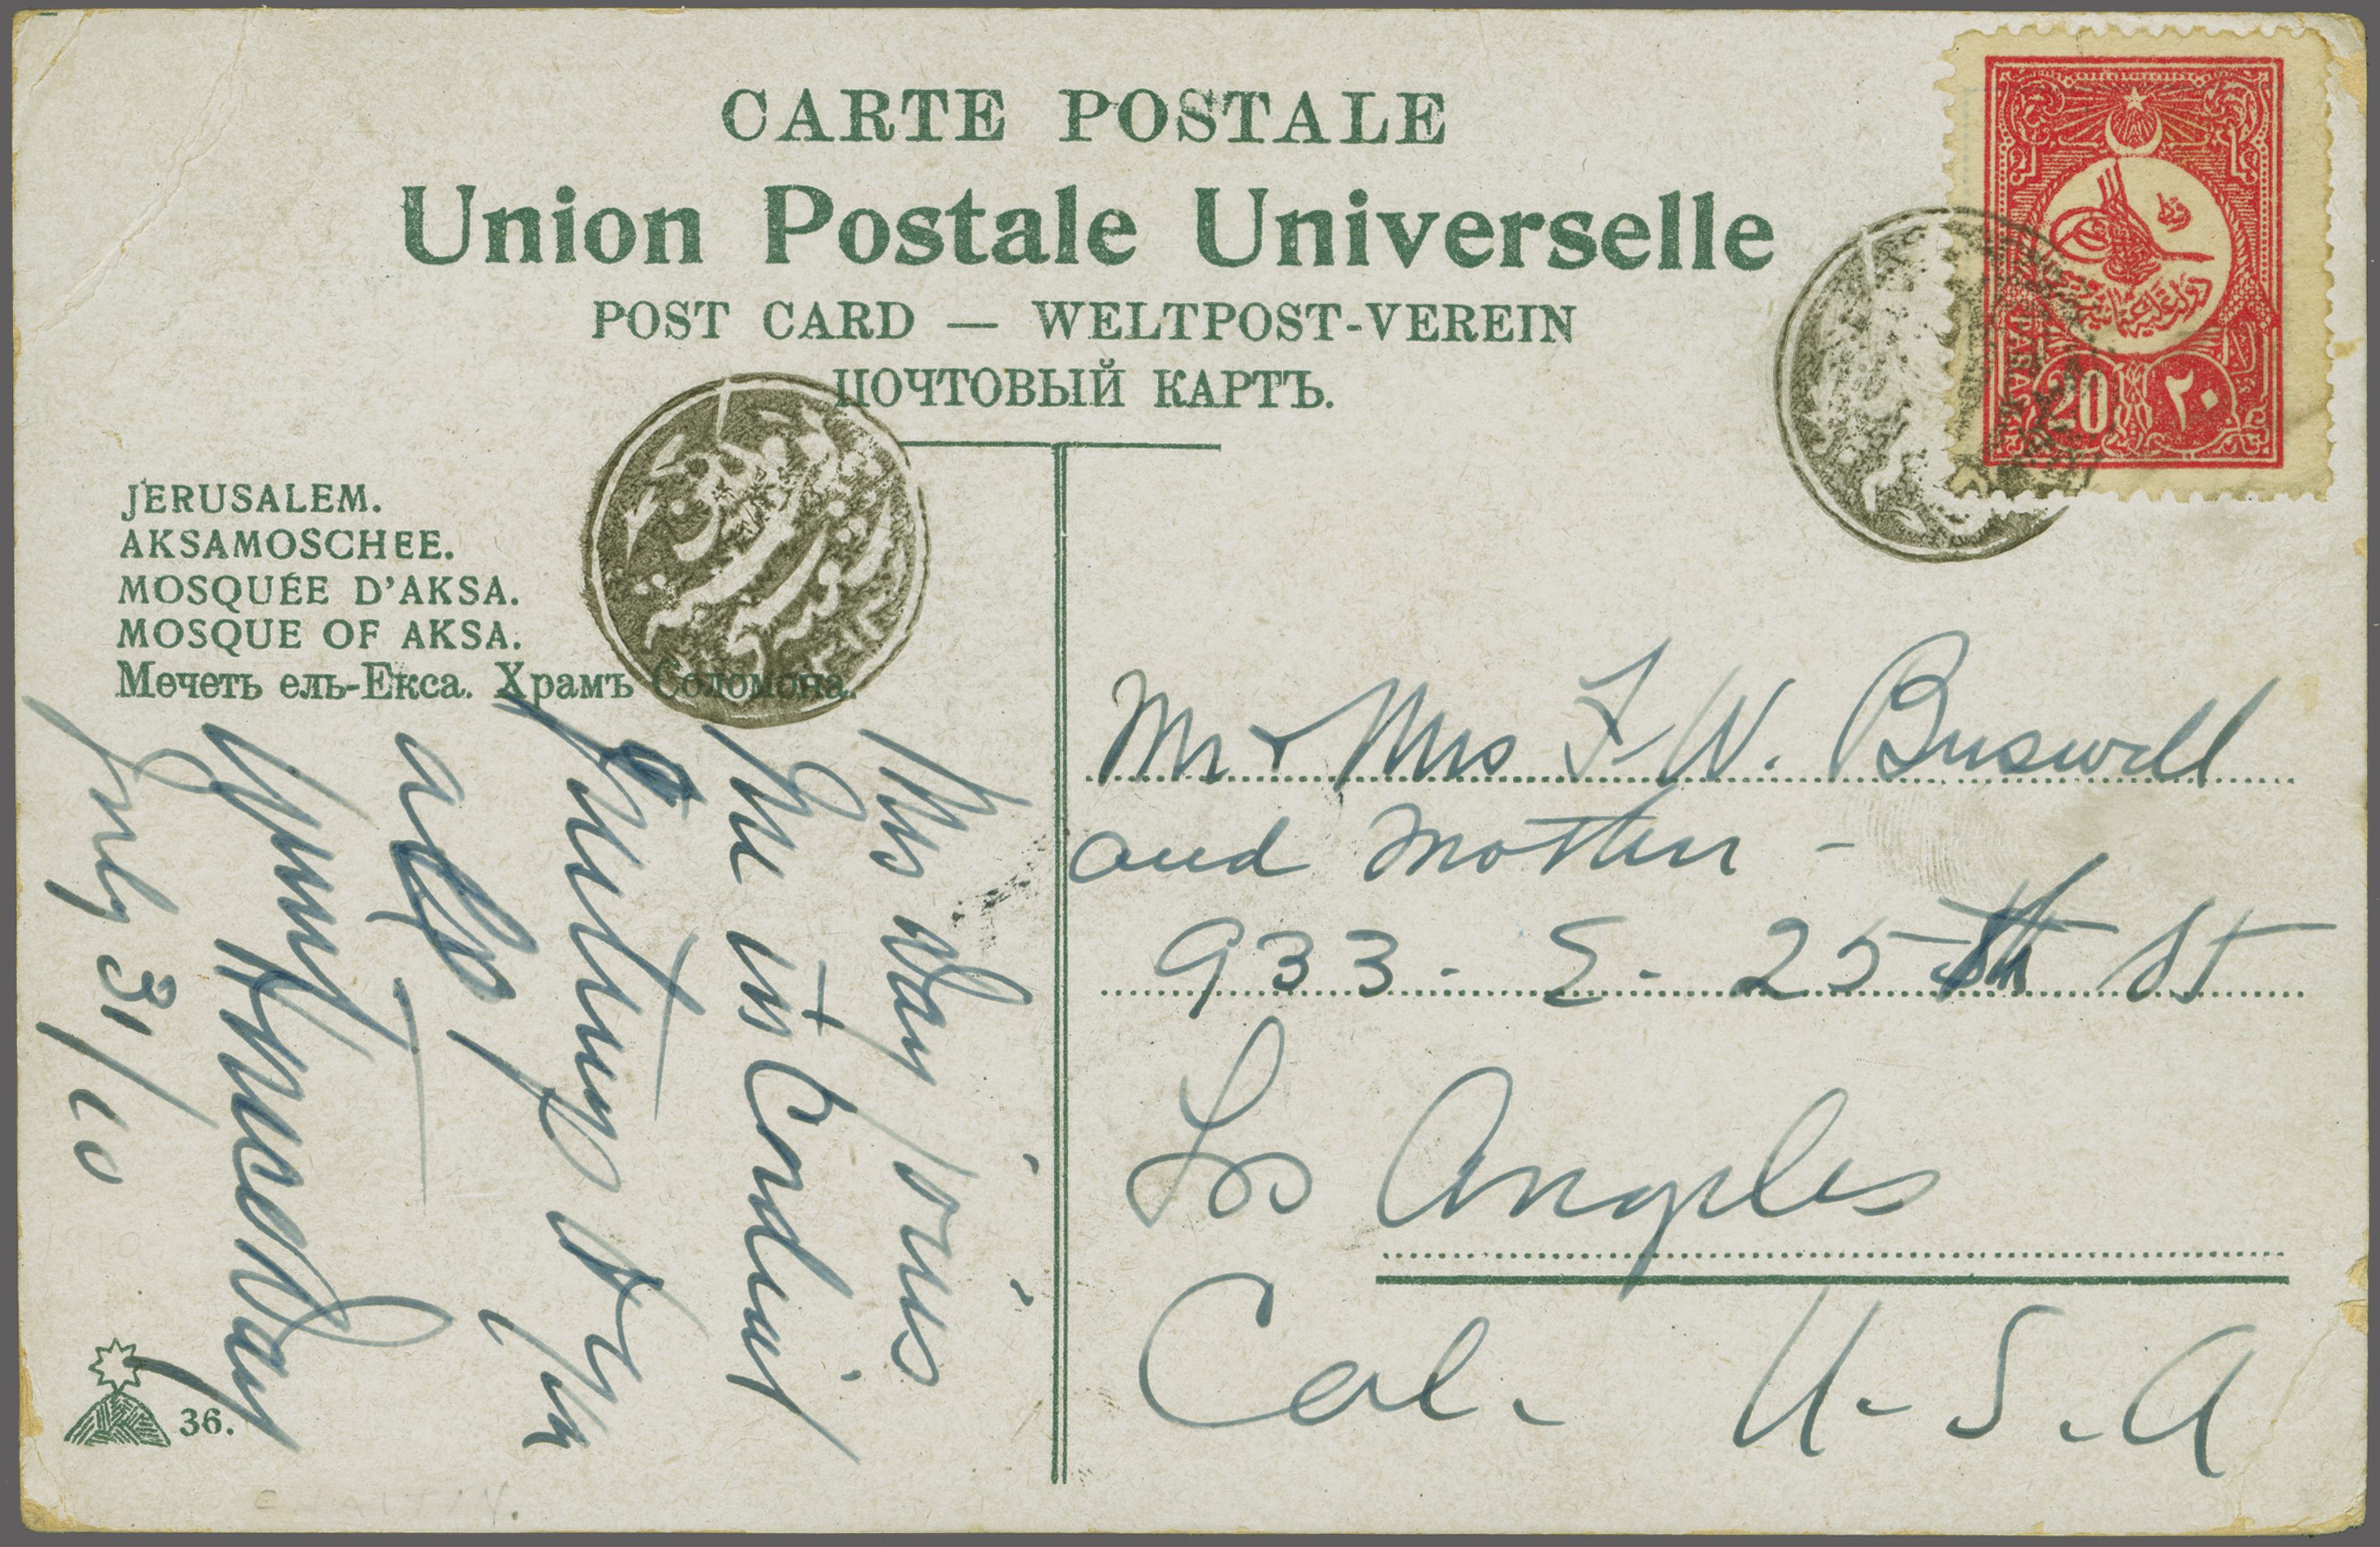 CARTE POSTALE
Union Postale Universelle
POST CARD — WELTPOST-VEREIN
ПОЧТОВЫЙ КАРТЪ.
20 ٢٠
JERUSALEM.
AKSAMOSCHEE.
MOSQUÉE D'AKSA.
MOSQUE OF AKSA.
Мечеть ель-Екса. Храмъ Соломона.
Mr & Mrs F. W. Buswell
and Mother -
933. E. 25th St
Los Angeles
Cal. U.S.A
This day joins
me in Cordial
greetings to you
all
July 31/10
36.